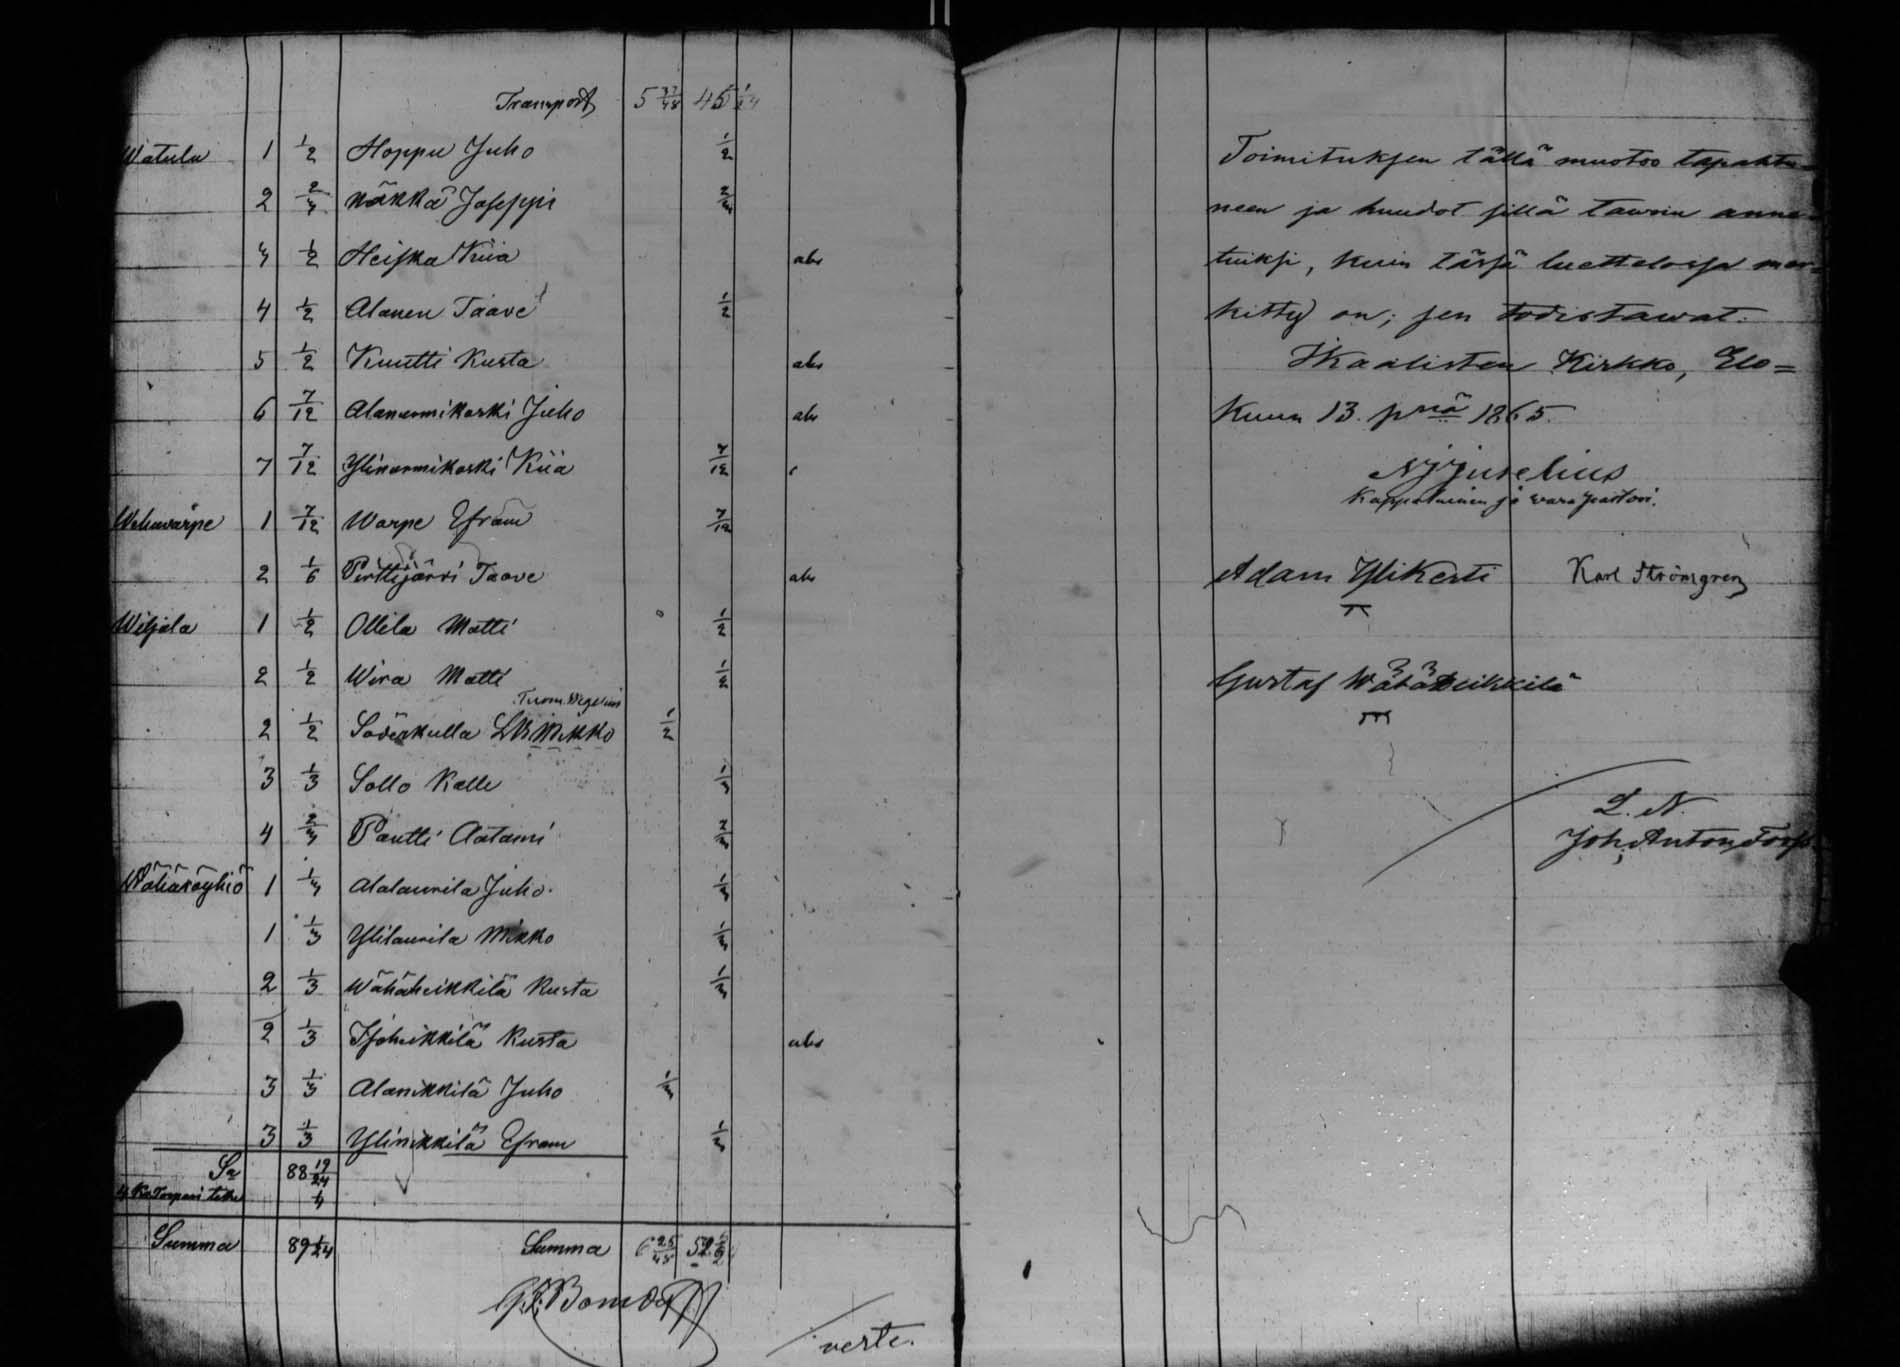 Transport 5 37/48 45 1/24
Watula 1 1/2 Hoppu Juho 1/2
2 2/3 Näkkä Joseppi 2/3
3 1/2 Heiska Kiia abs
4 1/2 Alanen Taave 1/2
5 1/2 Kuutti Kusta abs
6 7/12 Alanurmikoski Juho abs
7 7/12 Ylinurmikoski Kiia 7/12
Wehuvarpe 1 7/12 Warpe Efram 7/12
2 1/6 Perttijärvi Taave abs
Wiljala 1 1/2 Ollila Matti 1/2
2 1/2 Wira Matti 1/2
Tuom. Wegelius
2 1/2 Söderkulla Mikko 1/2
3 1/3 Sollo Kalle 1/3
4 2/3 Pantti Aatami 2/3
Wähäröyhiö 1 1/3 Alalaurila Juho 1/3
1 1/3 Ylilaurila Mikko 1/3
2 1/3 Wähäheikkilä Kusta 1/3
2 1/3 Isoheikkilä Kusta abs
3 1/3 Alanikkilä Juho 1/3
3 1/3 Ylinikkilä Efram 1/3
Sa 88 19/24
Summa 89 1/24 Summa 6 52
verte.
Toimituksen tällä muotoo tapahtu-
neen ja huudot sillä tawoin anne-
tuiksi, kuin tässä luettelossa mer-
kitty on; sen todistawat.
Ikaalisten Kirkko, Elo=
kuun 13. pnä 1865.
Juselius
Kappalainen ja wara pastori.
Adam Ylikesti Karl Strömgren
Gustaf Wähäheikkilä
Joh. Anton Forss